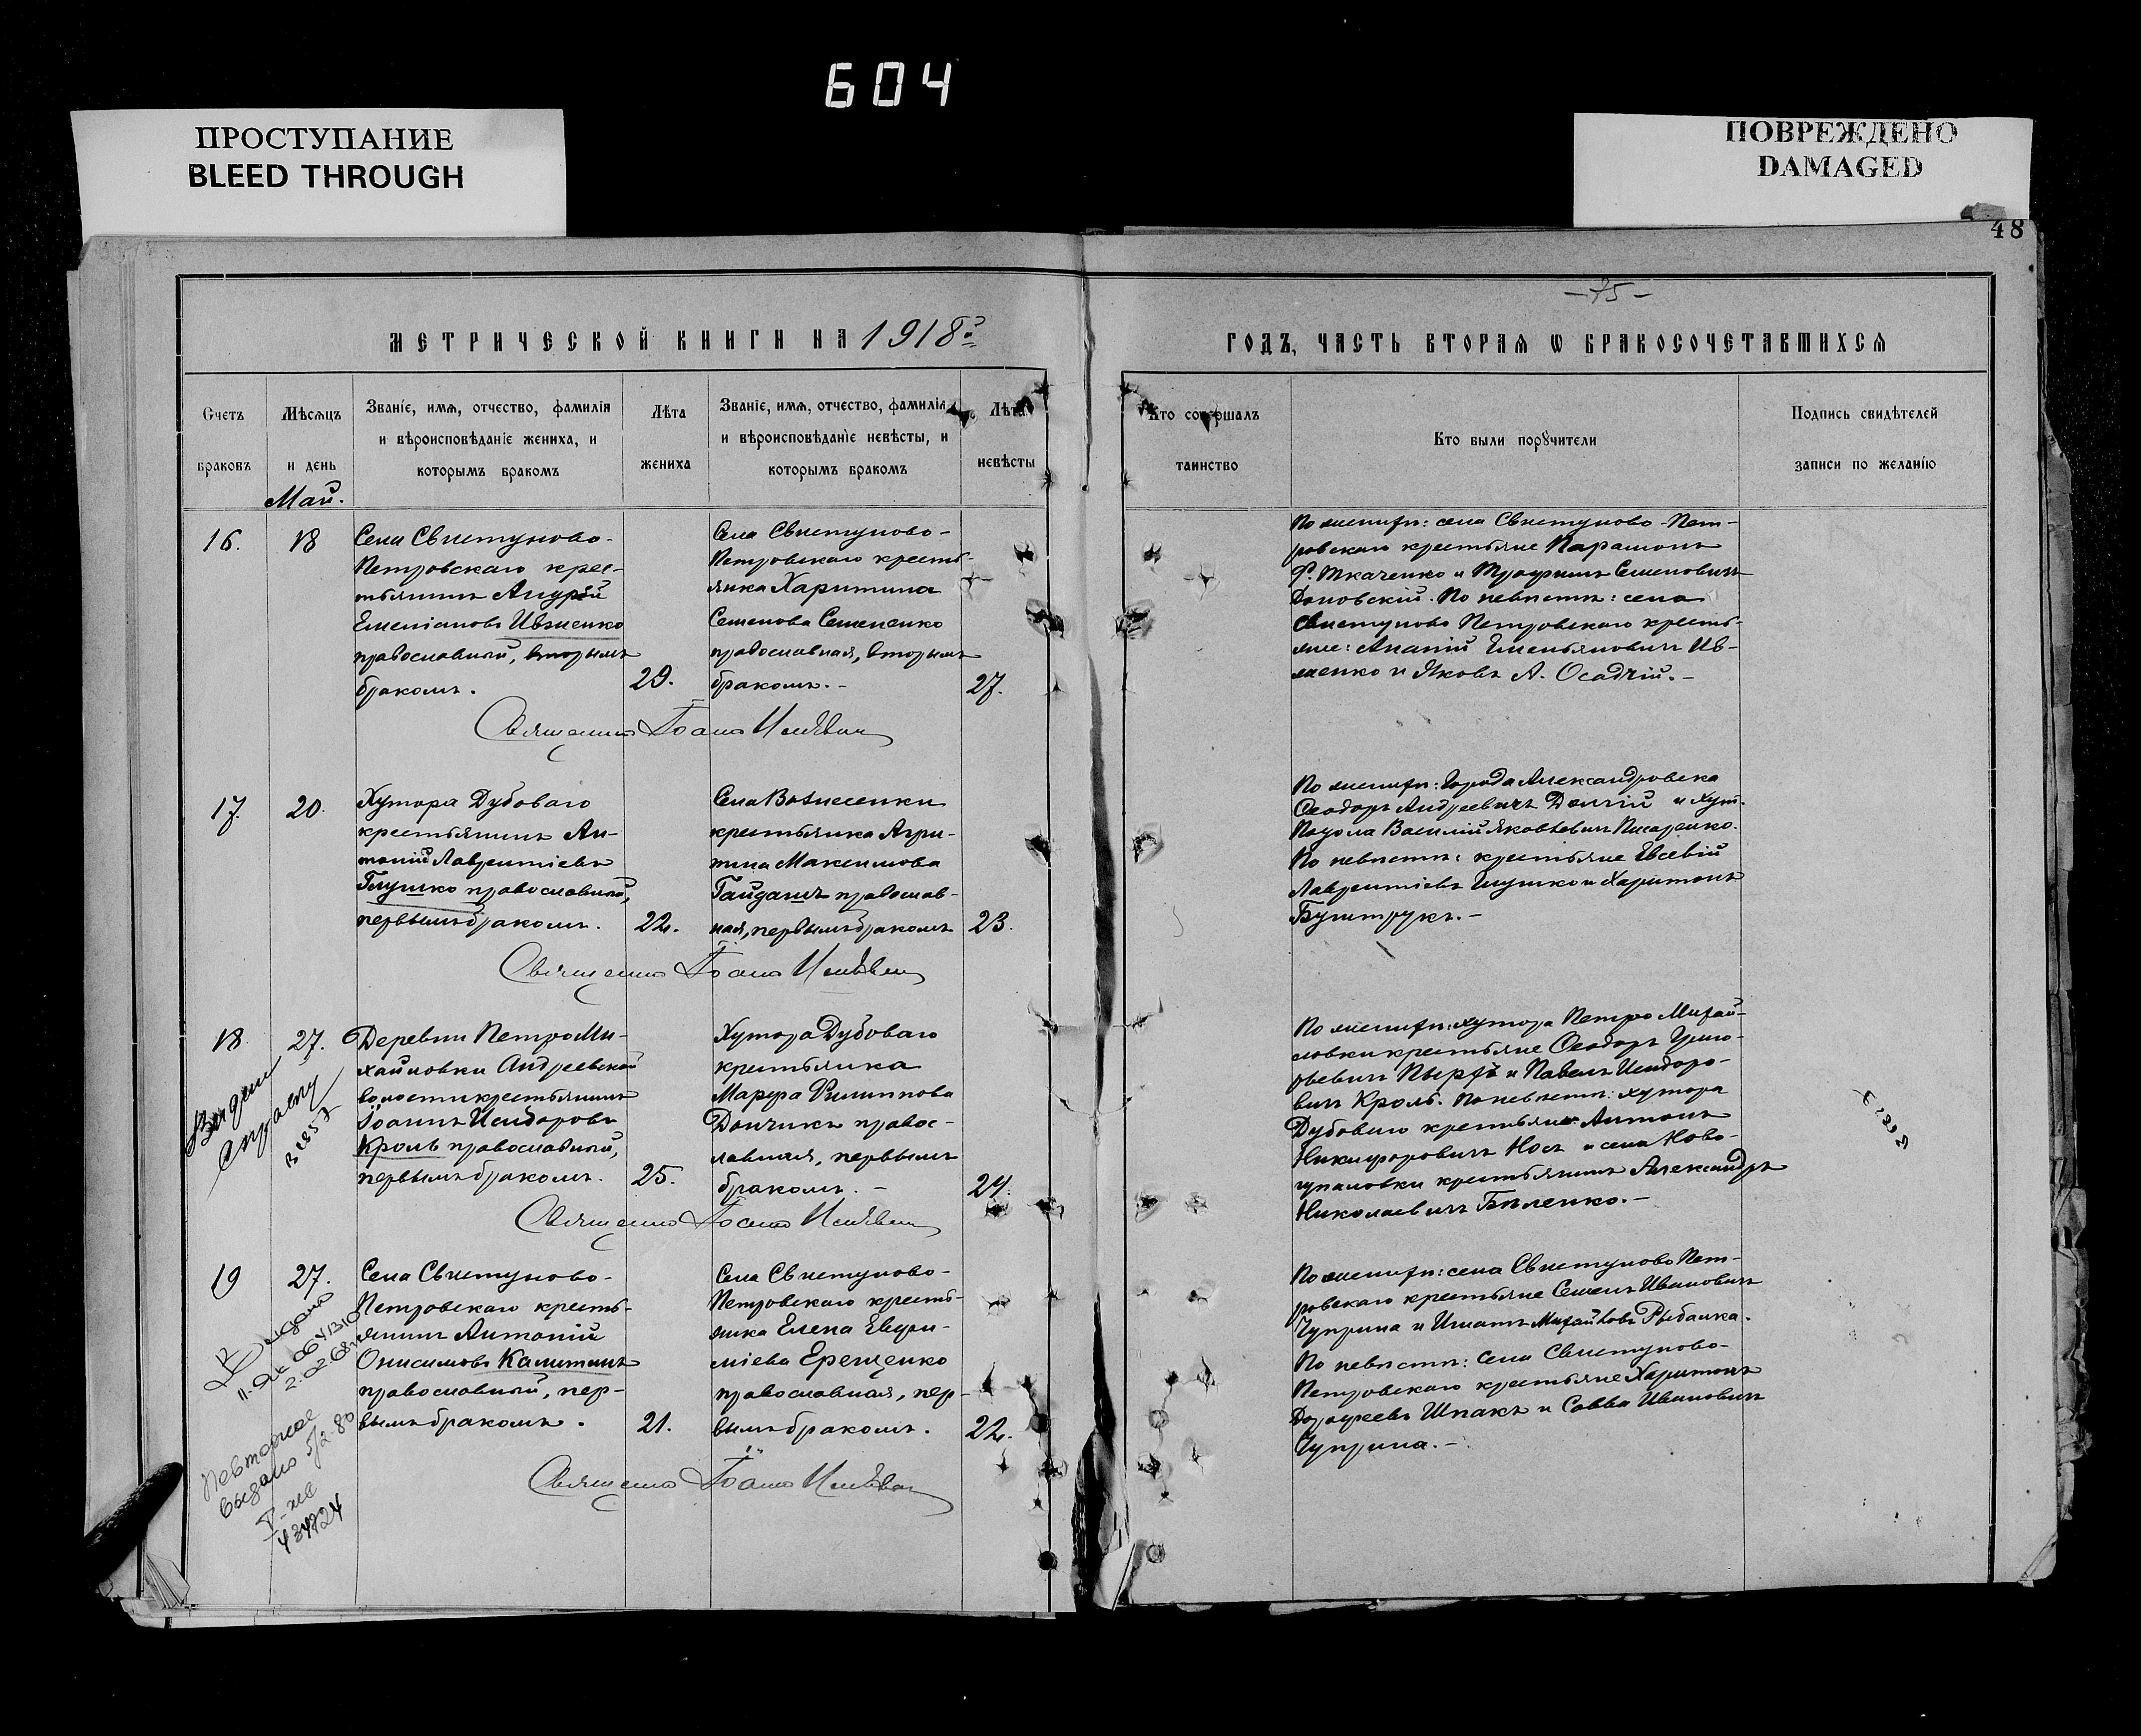 604
ПРОСТУПАНИЕ
BLEED THROUGH
ПОВРЕЖДЕНО
DAMAGED
48
-75-
МЕТРИЧЕСКОЙ КНИГИ НА 1918й
ГОДЪ, ЧАСТЬ ВТОРАЯ Ѡ БРАКОСОЧЕТАВШИХСЯ
Счетъ браковъ
Мѣсяцъ и день
Званіе, имя, отчество, фамилія
и вѣроисповѣданіе жениха, и
которымъ бракомъ
Лѣта жениха
Званіе, имя, отчество, фамилія
и вѣроисповѣданіе невѣсты, и
которымъ бракомъ
Лѣта невѣсты
Кто совершалъ
таинство
Кто были поручители
Подпись свидѣтелей
записи по желанію
Май.
16.
18
Села Свистуново-
Петровскаго крес-
тьянинъ Андрей
Емеліановъ Ивженко
православный, вторымъ
бракомъ.
29.
Села Свистуново-
Петровскаго кресть-
янка Харитина
Семенова Семененко
православная, вторымъ
бракомъ.-
27.
По женихѣ: села Свистуново-Пет-
ровскаго крестьяне Парамонъ
Ф. Ткаченко и Трофимъ Семеновичъ
По невѣстѣ: села
Свистуново Петровскаго кресть-
яне: Ананій Емельяновичъ Ив-
женко и Яковъ А. Осадчій.-
Священникъ Іоаннъ
17.
20.
Хутора Дубоваго
крестьянинъ Ан-
тоній Лаврентіевъ
Глушко православный,
первымъ бракомъ.
22.
Села Вознесенки
крестьянка Агри-
пина Максимова
Гайдашъ православ-
ная, первымъ бракомъ
23.
По женихѣ: Города Александровска
Ѳеодоръ Андреевичъ Долгій и хут.
Подола Василій Яковлевичъ Писаренко.
По невѣстѣ: крестьяне Евсевій
Лаврентіевъ Глушко и Харитонъ
Буштрукъ.-
Священникъ Іоаннъ
18.
27.
Деревни Петро Ми-
хайловки Андреевской
волости крестьянинъ
Іоаннъ Исидоровъ
Кроль православный,
первымъ бракомъ.
25.
Хутора Дубоваго
крестьянка
Марѳа Филиппова
Дончикъ правос-
лавная, первымъ
бракомъ.-
24.
По женихѣ: хутора Петро Михай-
ловки крестьяне Ѳеодоръ Григо-
рьевичъ Пырѣй и Павелъ Исидоро-
вичъ Кроль. По невѣстѣ: хутора
Дубоваго крестьяне Антонъ
Никифоровичъ Носъ и села Ново-
гупаловки крестьянинъ Александръ
Николаевичъ Біленко.-
Священникъ Іоаннъ
19
27.
Села Свистуново-
Петровскаго кресть-
янинъ Антоній
Онисимовъ Калитинъ
православный, пер-
вымъ бракомъ.
21.
Села Свистуново-
Петровскаго кресть-
янка Елена Евфи-
міева Ерещенко
православная, пер-
вымъ бракомъ.
22.
По женихѣ: села Свистуново Пет-
ровскаго крестьяне Семенъ Ивановичъ
Чуприна и Игнатъ Михайловъ Рыбалка.
По невѣстѣ: села Свистуново-
Петровскаго крестьяне Харитонъ
Дорофеевъ Шпакъ и Савва Ивановичъ
Чуприна.-
Священникъ Іоаннъ
Повторное
выдано 5/2-80